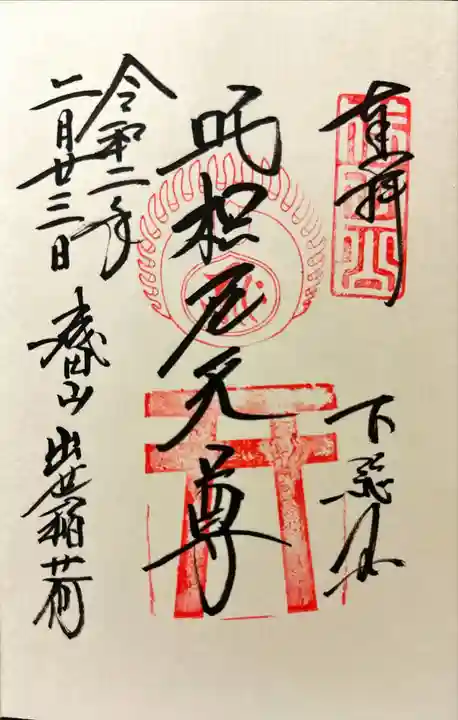 奉拝
下総国
吒枳尼天尊
令和二年
二月廿三日
成田山 出世稲荷